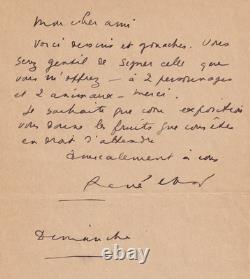 Mon cher ami
Voici dessins et gouaches. Vous
serez gentil de signer celle que
vous m'offrez — à 2 personnages
et 2 animaux — merci.
Je souhaite que votre exposition
vous donne les fruits que vous êtes
en droit d'attendre
Amicalement à vous
René Char
Dimanche